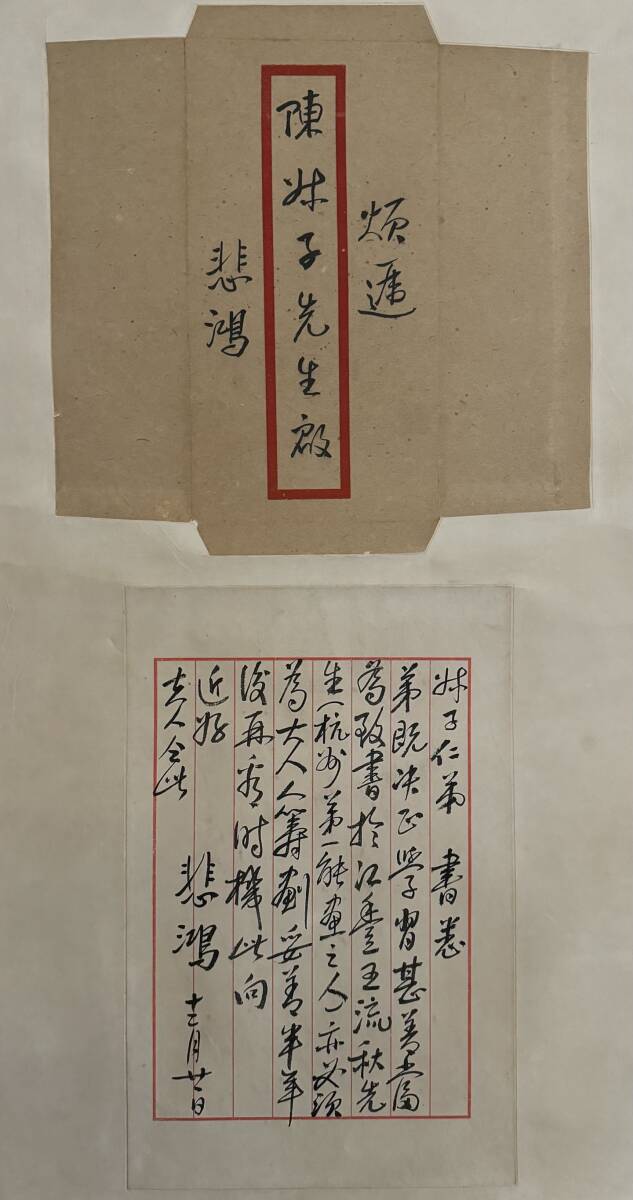 煩遞
陳妹子先生啟
悲鴻
妹子仁弟 書悉
弟既決正學習甚善當
為致書於江豐王流秋先
生（杭州第一能畫之人）亦必須
為大人籌劃妥善半年
後再看時機此向
近好
夫人仝此
悲鴻 十二月廿一日